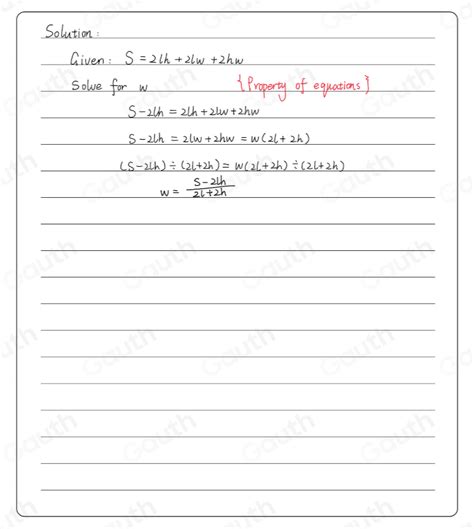 Solution:
Given: S = 2lh + 2lw + 2hw
Solve for w {Property of equations}
S-2lh = 2lh + 2lw + 2hw
S-2lh = 2lw + 2hw = w(2l + 2h)
(S-2lh) ÷ (2l+2h) = w(2l+2h) ÷ (2l+2h)
w = \frac{S-2lh}{2l+2h}
Gauth